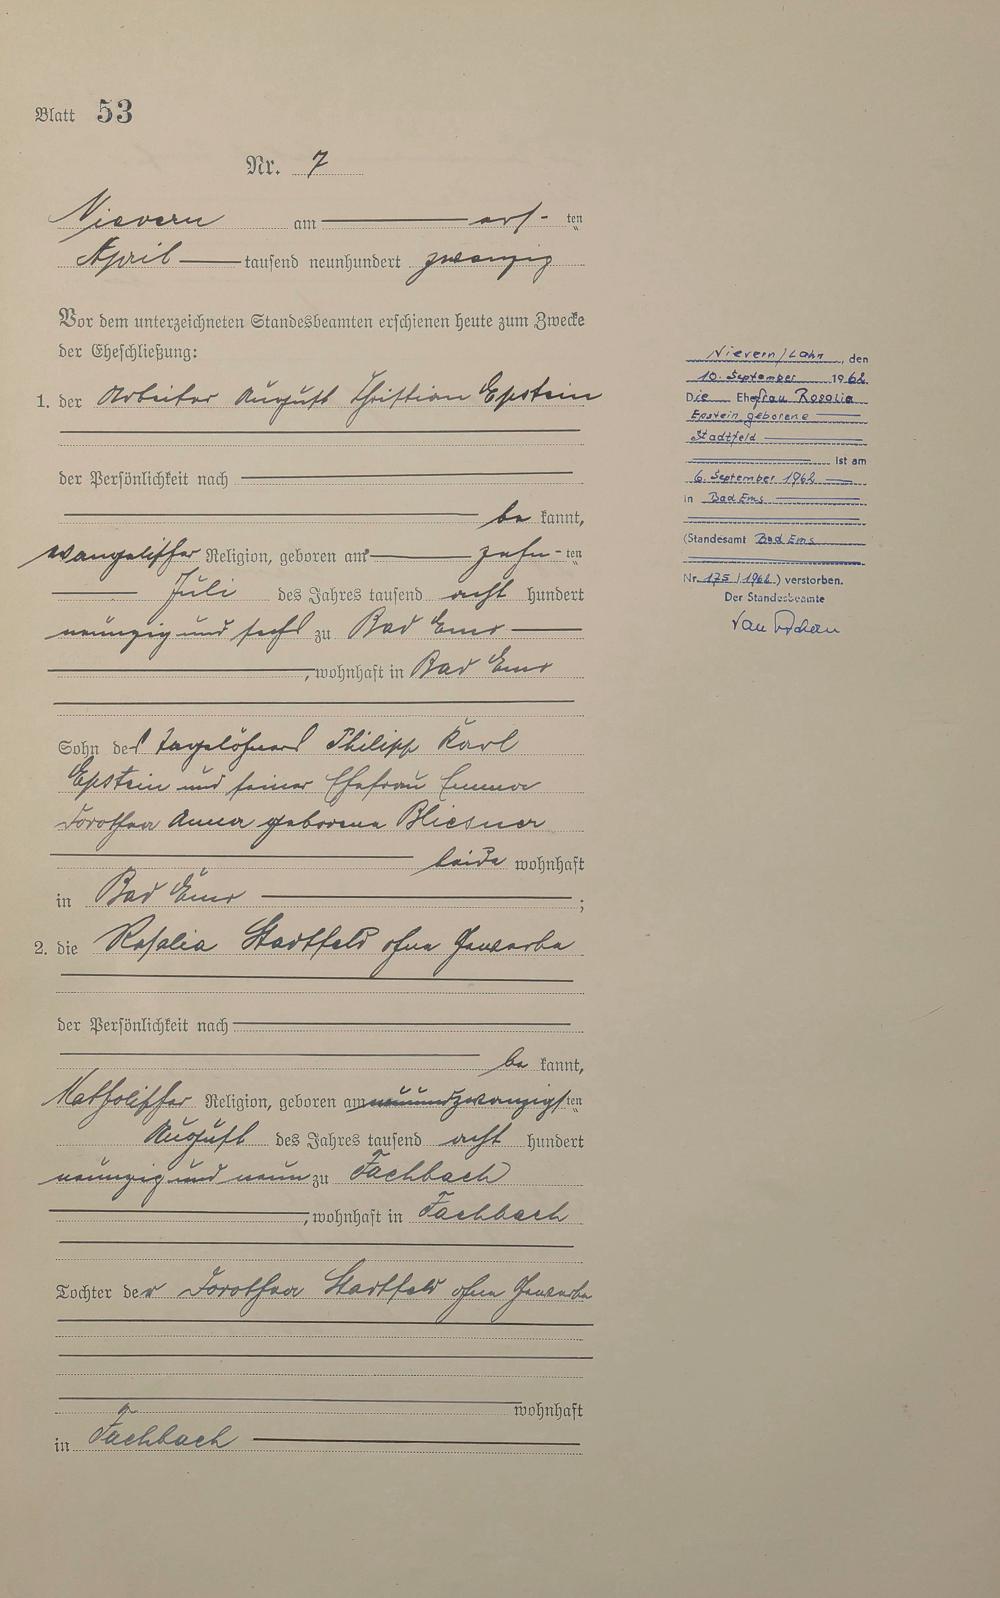 Blatt 53
Nr. 7
Nievern am ersten
April tausend neunhundert zwanzig
Vor dem unterzeichneten Standesbeamten erschienen heute zum Zwecke
der Eheschließung:
1. der Arbeiter August Christian Epstein
der Persönlichkeit nach
bekannt,
evangelischer Religion, geboren am zehnten
Juli des Jahres tausend acht hundert
neunzig und sechs zu Bad Ems
, wohnhaft in Bad Ems
Sohn des Tagelöhners Philipp Karl
Epstein und seiner Ehefrau Emma
Dorothea Anna geborene Bliesner
beide wohnhaft
in Bad Ems ;
2. die Rosalia Stadtfeld ohne Gewerbe
der Persönlichkeit nach
bekannt,
Katholischer Religion, geboren am neunundzwanzigsten
August des Jahres tausend acht hundert
neunzig und neun zu Fachbach
, wohnhaft in Fachbach
Tochter der Dorothea Stadtfeld ohne Gewerbe
wohnhaft
in Fachbach
Nievern/Lahn, den
10. September 1962
Die Ehefrau Rosalia
Epstein geborene
Stadtfeld
ist am
6. September 1962
in Bad Ems
(Standesamt Bad Ems
Nr. 175/1962) verstorben.
Der Standesbeamte